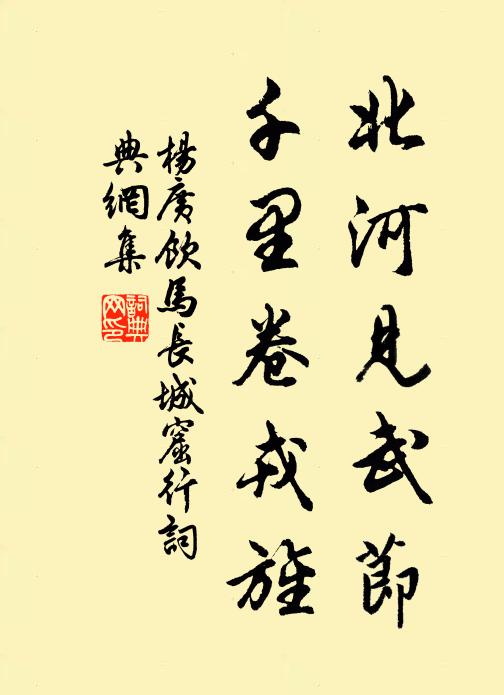 北河見武節
千里卷戎旌
楊廣飲馬長城窟行詞
典網集
詞典網印